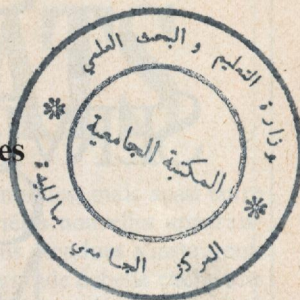 وزارة التعليم و البحث العلمي
المكتبة الجامعية
المركز الجامعي بالبليدة
es